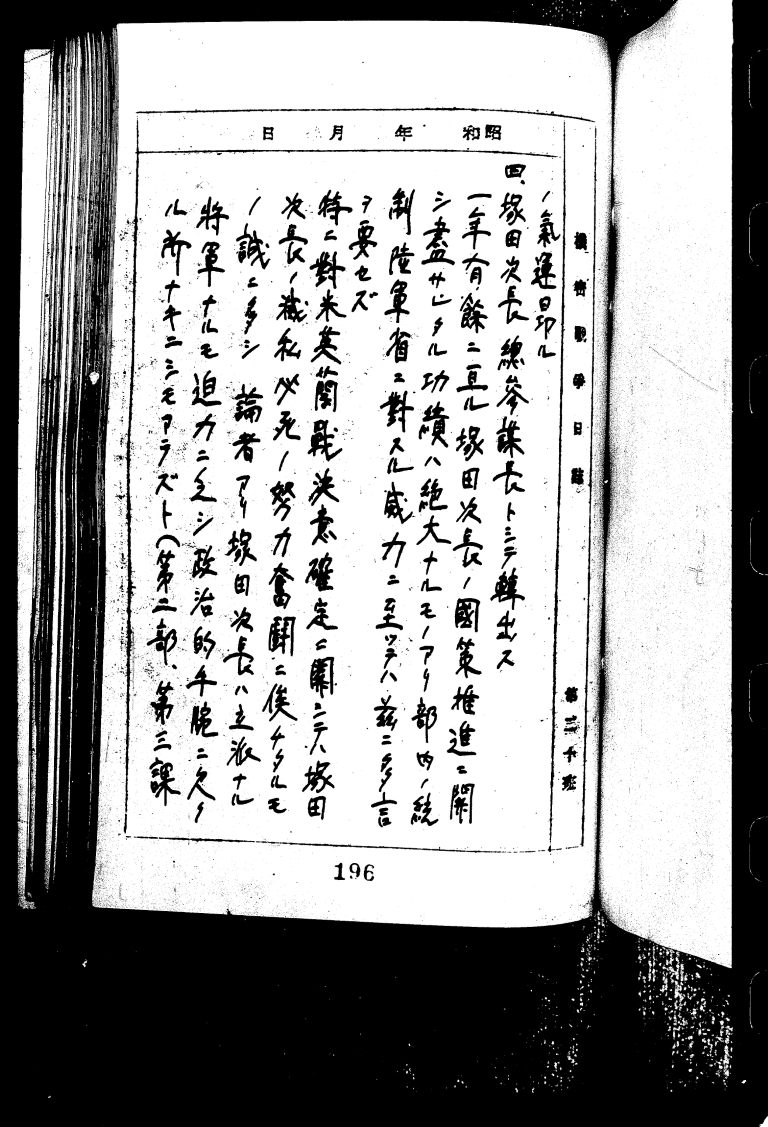 昭和　年　月　日
機密戰爭日誌
第二十班
ノ氣運昂ル
四、塚田次長總參謀長トシテ轉出ス
一年有餘ニ亘ル塚田次長ノ國策推進ニ關
シ盡サレタル功績ハ絶大ナルモノアリ部内ノ統
制陸軍省ニ對スル威力ニ至ツテハ茲ニ多言
ヲ要セズ
特ニ對米英蘭戰決意確定ニ關シテハ塚田
次長ノ滅私必死ノ努力奮鬪ニ俟チタルモ
ノ誠ニ多シ　論者アリ塚田次長ハ立派ナル
將軍ナルモ迫力ニ乏シ政治的手腕ニ欠ク
ル所ナキニシモアラズト（第二部、第三課
196